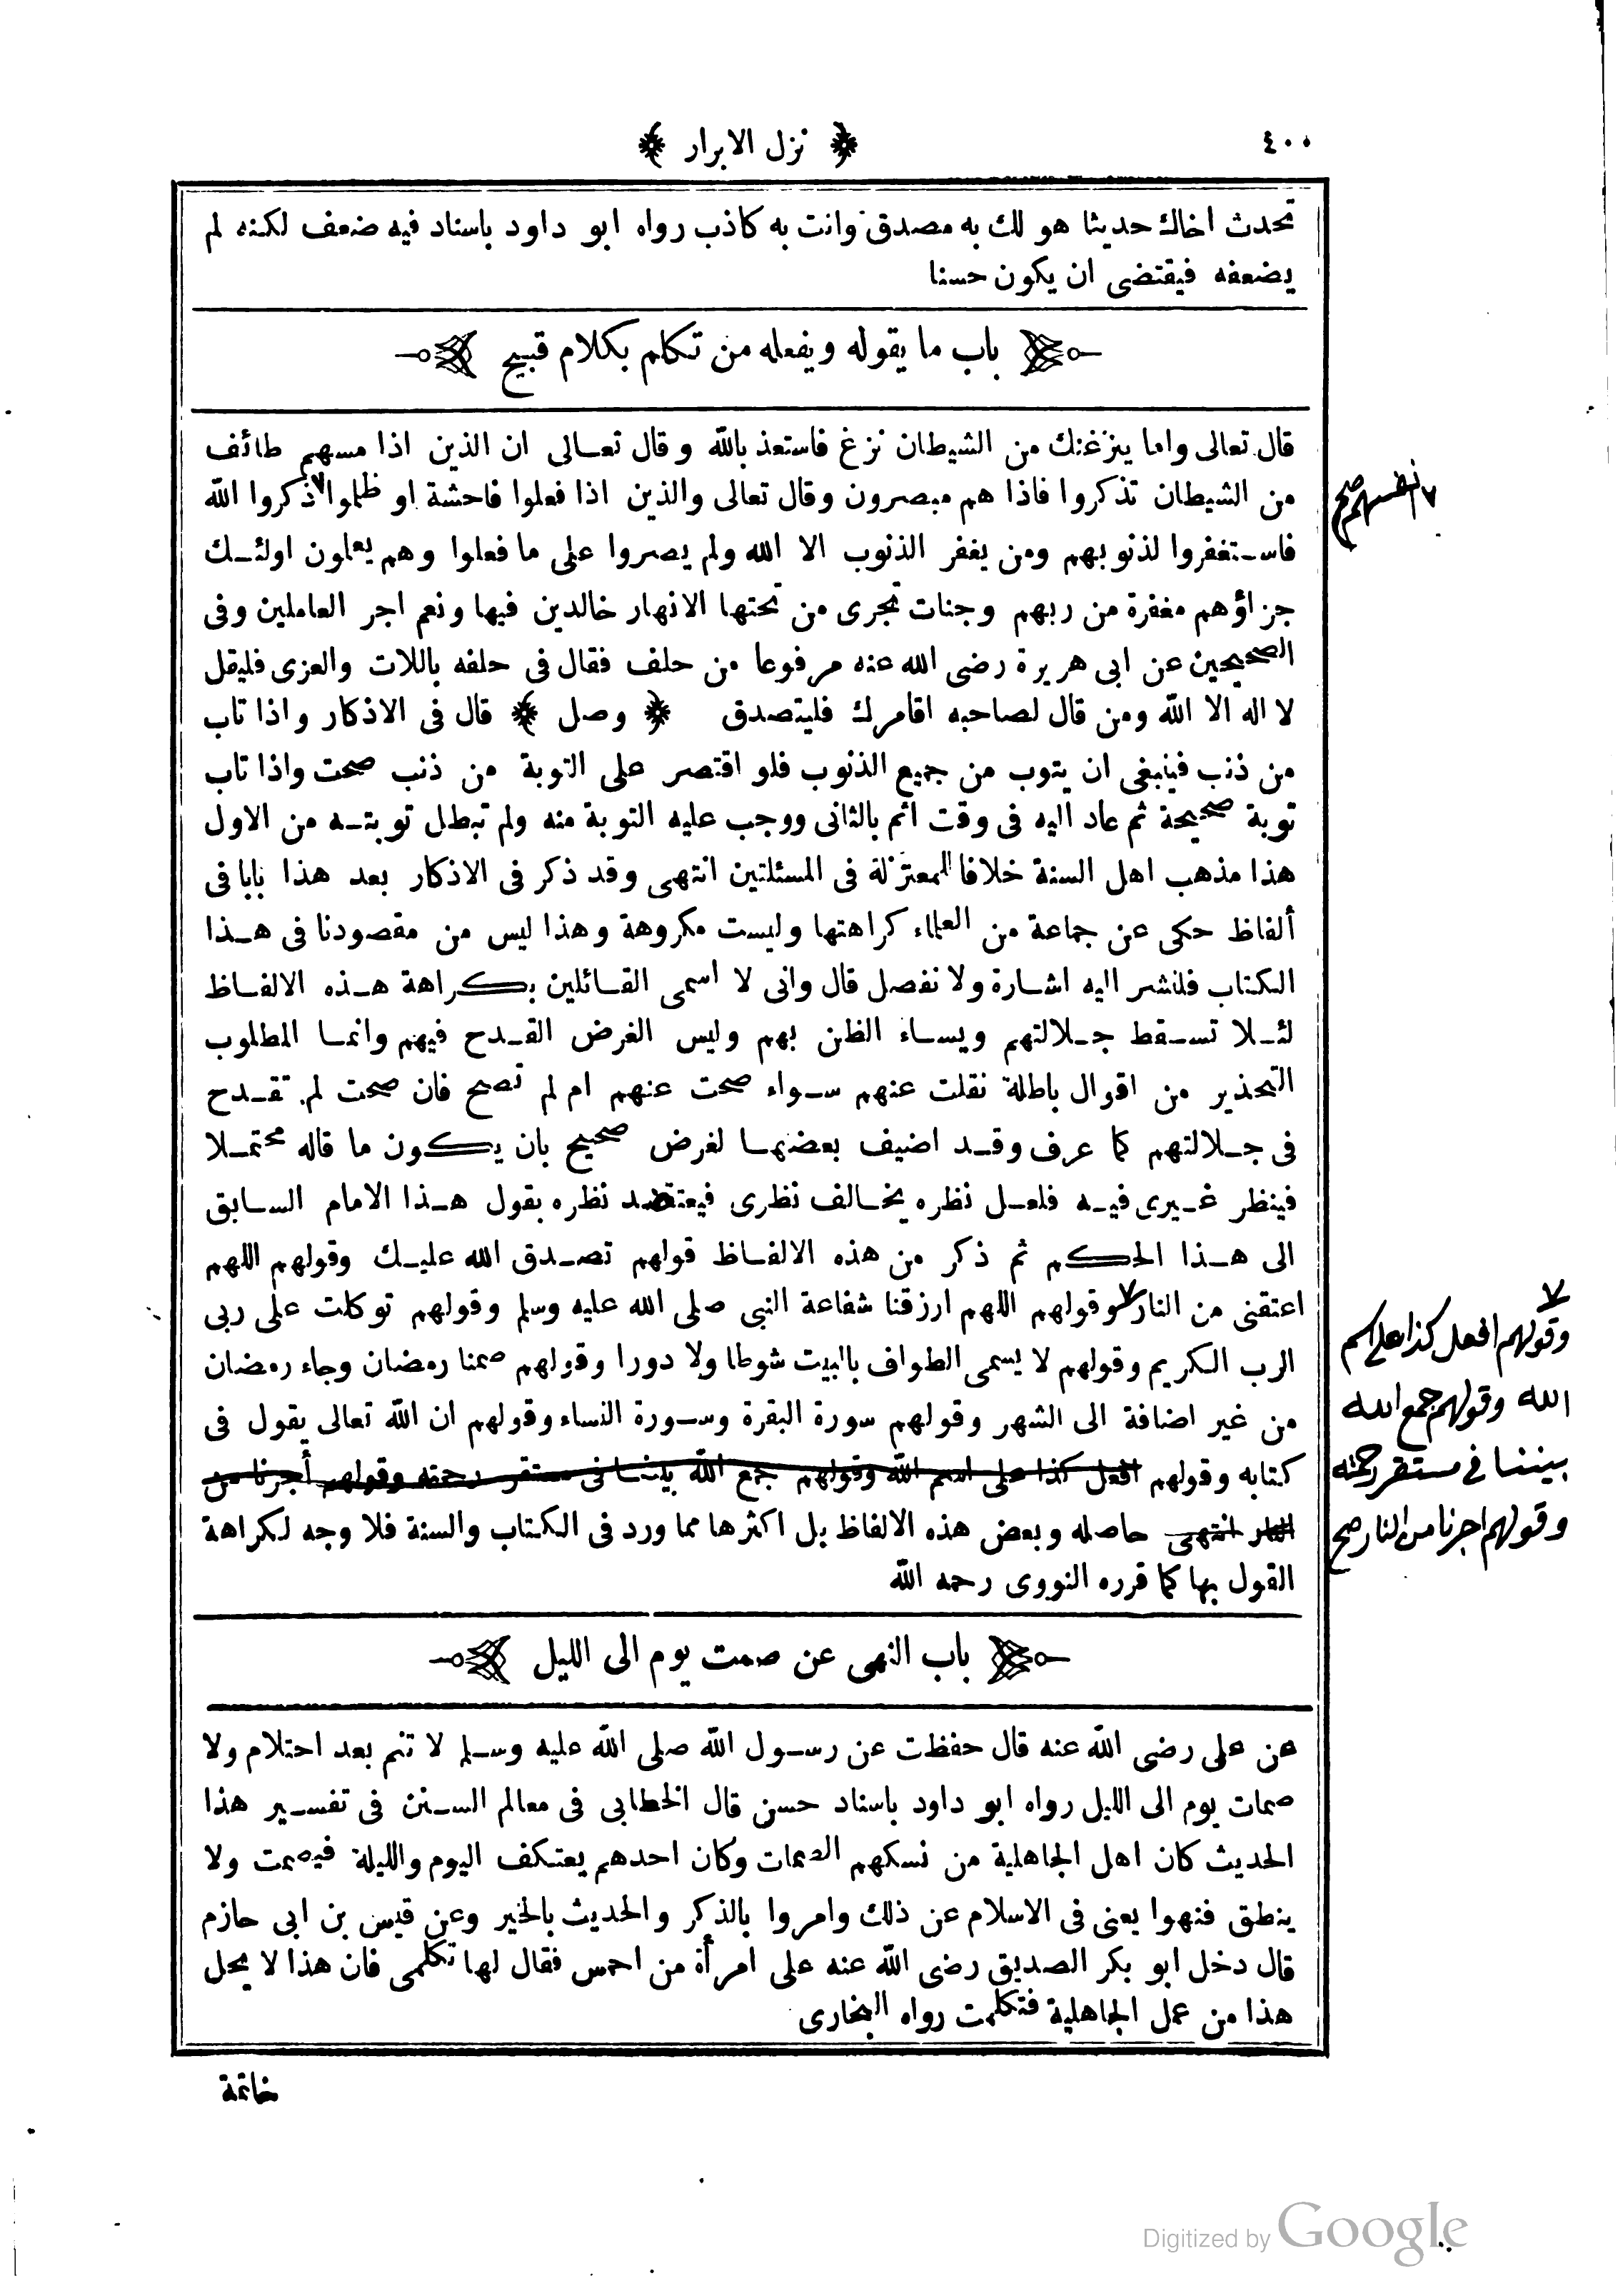 ٤٠٠
﴿ نزل الابرار ﴾
تحدث اخاك حديثا هو لك به مصدق وانت به كاذب رواه ابو داود باسناد فيه ضعف لكنه لم
يضعفه فيقتضى ان يكون حسنا
باب ما يقوله ويفعله من تكلم بكلام قبيح
قال تعالى واما ينزغنك من الشيطان نزغ فاستعذ بالله وقال تعالى ان الذين اذا مسهم طائف
من الشيطان تذكروا فاذا هم مبصرون وقال تعالى والذين اذا فعلوا فاحشة او ظلموا٧ ذكروا الله
٧ انفسهم صح
فاستغفروا لذنوبهم ومن يغفر الذنوب الا الله ولم يصروا على ما فعلوا وهم يعلمون اولئك
جزاؤهم مغفرة من ربهم وجنات تجرى من تحتها الانهار خالدين فيها ونعم اجر العاملين وفى
الصحيحين عن ابى هريرة رضى الله عنه مرفوعا من حلف فقال فى حلفه باللات والعزى فليقل
لا اله الا الله ومن قال لصاحبه اقامرك فليتصدق ﴿ وصل ﴾ قال فى الاذكار واذا تاب
من ذنب فينبغى ان يتوب من جميع الذنوب فلو اقتصر على التوبة من ذنب صحت واذا تاب
توبة صحيحة ثم عاد اليه فى وقت اثم بالثانى ووجب عليه التوبة منه ولم تبطل توبته من الاول
هذا مذهب اهل السنة خلافا للمعتزلة فى المسئلتين انتهى وقد ذكر فى الاذكار بعد هذا بابا فى
ألفاظ حكى عن جماعة من العلماء كراهتها وليست مكروهة وهذا ليس من مقصودنا فى هذا
الكتاب فلنشر اليه اشارة ولا نفصل قال وانى لا اسمى القائلين بكراهة هذه الالفاظ
لئلا تسقط جلالتهم ويساء الظن بهم وليس الغرض القدح فيهم وانما المطلوب
التحذير من اقوال باطلة نقلت عنهم سواء صحت عنهم ام لم تصح فان صحت لم تقدح
فى جلالتهم كما عرف وقد اضيف بعضها لغرض صحيح بان يكون ما قاله محتملا
فينظر غيرى فيه فلعل نظره يخالف نظرى فيعتضد نظره بقول هذا الامام السابق
الى هذا الحكم ثم ذكر من هذه الالفاظ قولهم تصدق الله عليك وقولهم اللهم
اعتقنى من النار ٧ وقولهم اللهم ارزقنا شفاعة النبى صلى الله عليه وسلم وقولهم توكلت على ربى
الرب الكريم وقولهم لا يسمى الطواف بالبيت شوطا ولا دورا وقولهم صمنا رمضان وجاء رمضان
من غير اضافة الى الشهر وقولهم سورة البقرة وسورة النساء وقولهم ان الله تعالى يقول فى
كتابه وقولهم افعل كذا على اسم الله وقولهم جمع الله بيننا فى مستقر رحمته وقولهم أجرنا من
النار انتهى حاصله وبعض هذه الالفاظ بل اكثرها مما ورد فى الكتاب والسنة فلا وجه لكراهة
القول بها كما قرره النووى رحمه الله
٧
وقولهم افعل كذا على اسم
الله وقولهم جمع الله
بيننا فى مستقر رحمته
وقولهم اجرنا من النار صح
باب النهى عن صمت يوم الى الليل
عن على رضى الله عنه قال حفظت عن رسول الله صلى الله عليه وسلم لا يتم بعد احتلام ولا
صمات يوم الى الليل رواه ابو داود باسناد حسن قال الخطابى فى معالم السنن فى تفسير هذا
الحديث كان اهل الجاهلية من نسكهم الصمات وكان احدهم يعتكف اليوم والليلة فيصمت ولا
ينطق فنهوا يعنى فى الاسلام عن ذلك وامروا بالذكر والحديث بالخير وعن قيس بن ابى حازم
قال دخل ابو بكر الصديق رضى الله عنه على امرأة من احمس فقال لها تكلمى فان هذا لا يحل
هذا من عمل الجاهلية فتكلمت رواه البخارى
خاتمة
Digitized by Google